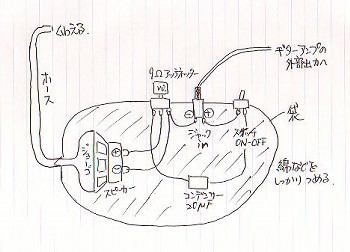 くわえる。
ホース
9Ωアッテネーター
ギターアンプの
外部出力へ
袋
ジャック
in
スイッチ
ON-OFF
じょうご
スピーカー
コンデンサー
20μF
綿などを
しっかりつめる。